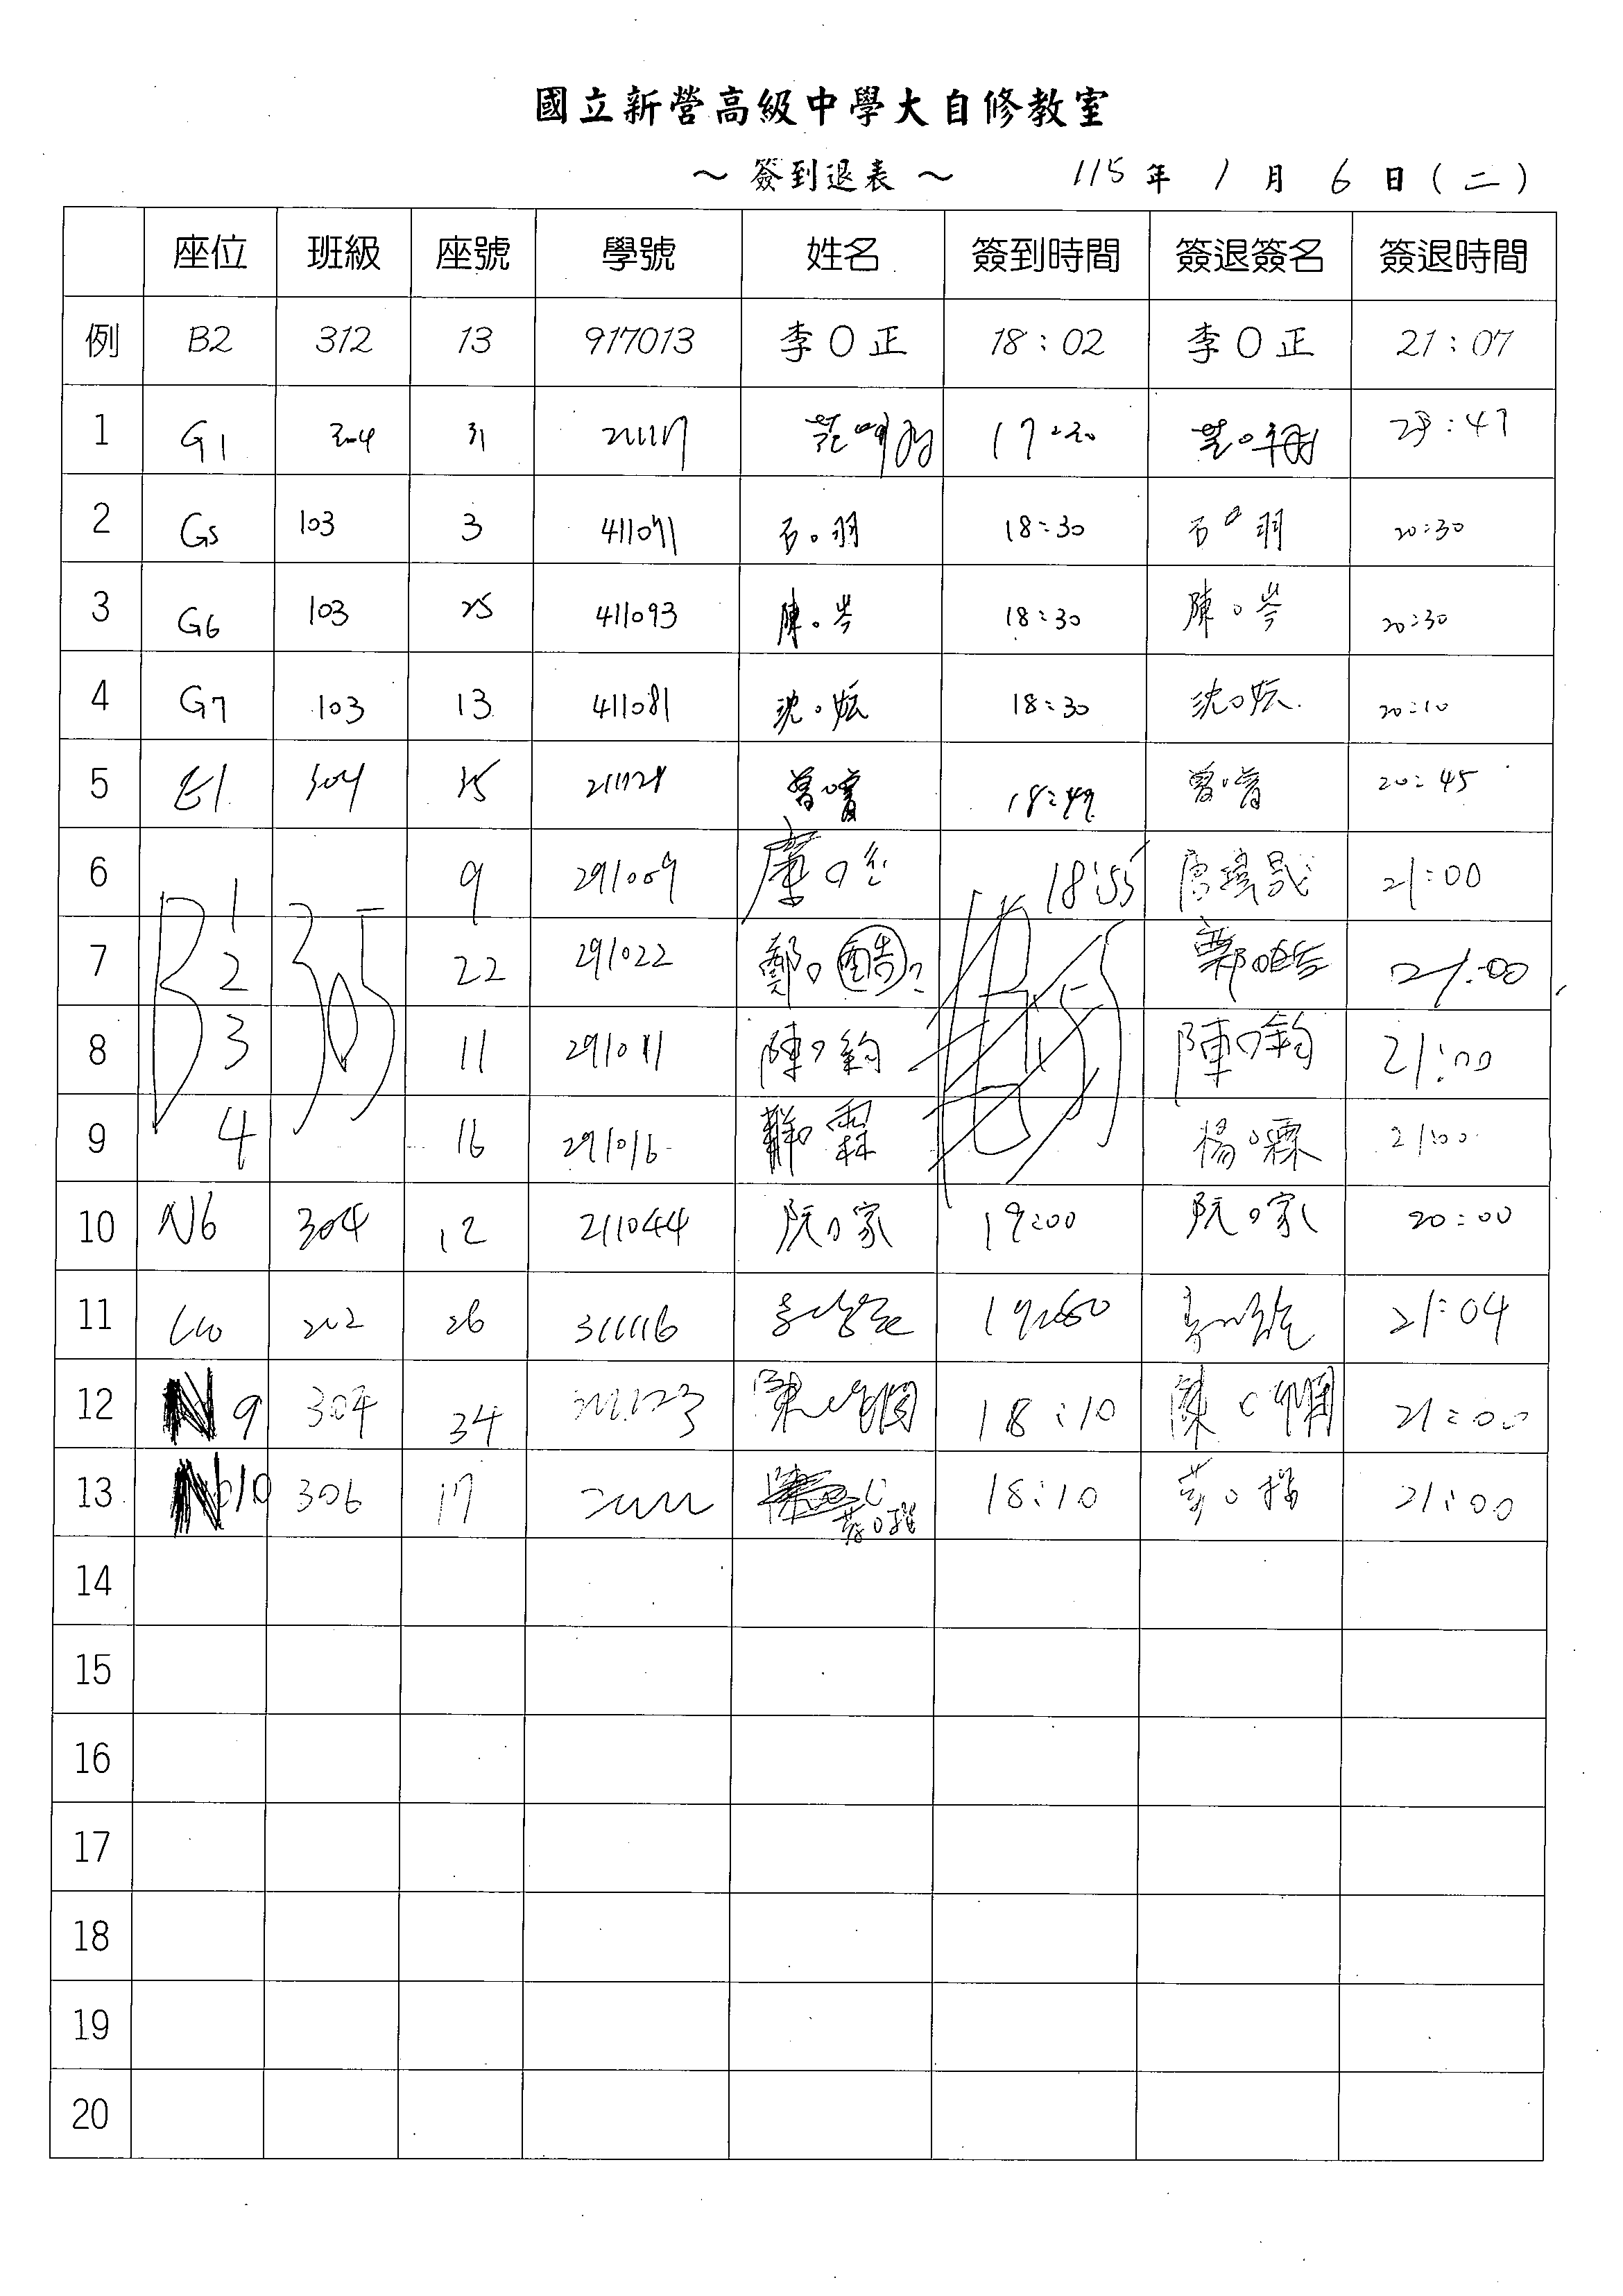 國立新營高級中學大自修教室
～ 簽到退表 ～ 115 年 1 月 6 日 ( 二 )
座位 班級 座號 學號 姓名 簽到時間 簽退簽名 簽退時間
例 B2 312 13 917013 李O正 18:02 李O正 21:07
1 G1 304 31 范 17:30 :47
2 G5 103 3 411071 石O羽 18:30 石O羽 20:30
3 G6 103 25 411093 陳O岑 18:30 陳O岑 20:30
4 G7 103 13 411081 沈O妘 18:30 沈O妘 20:10
5 E1 304 35 曾O 18:49 曾O 20:45
6 B1 305 9 291009 18:55 21:00
7 2 22 291022 鄭O 鄭O皓 21:00
8 3 11 291011 陳O鈞 陳O鈞 21:00
9 4 16 291016 霖 楊O霖 21:00
10 N6 304 12 211044 阮O家 19:00 阮O家 20:00
11 202 26 311116 21:04
12 N9 304 34 陳 18:10 陳 21:00
13 N10 306 17 18:10 21:00
14
15
16
17
18
19
20